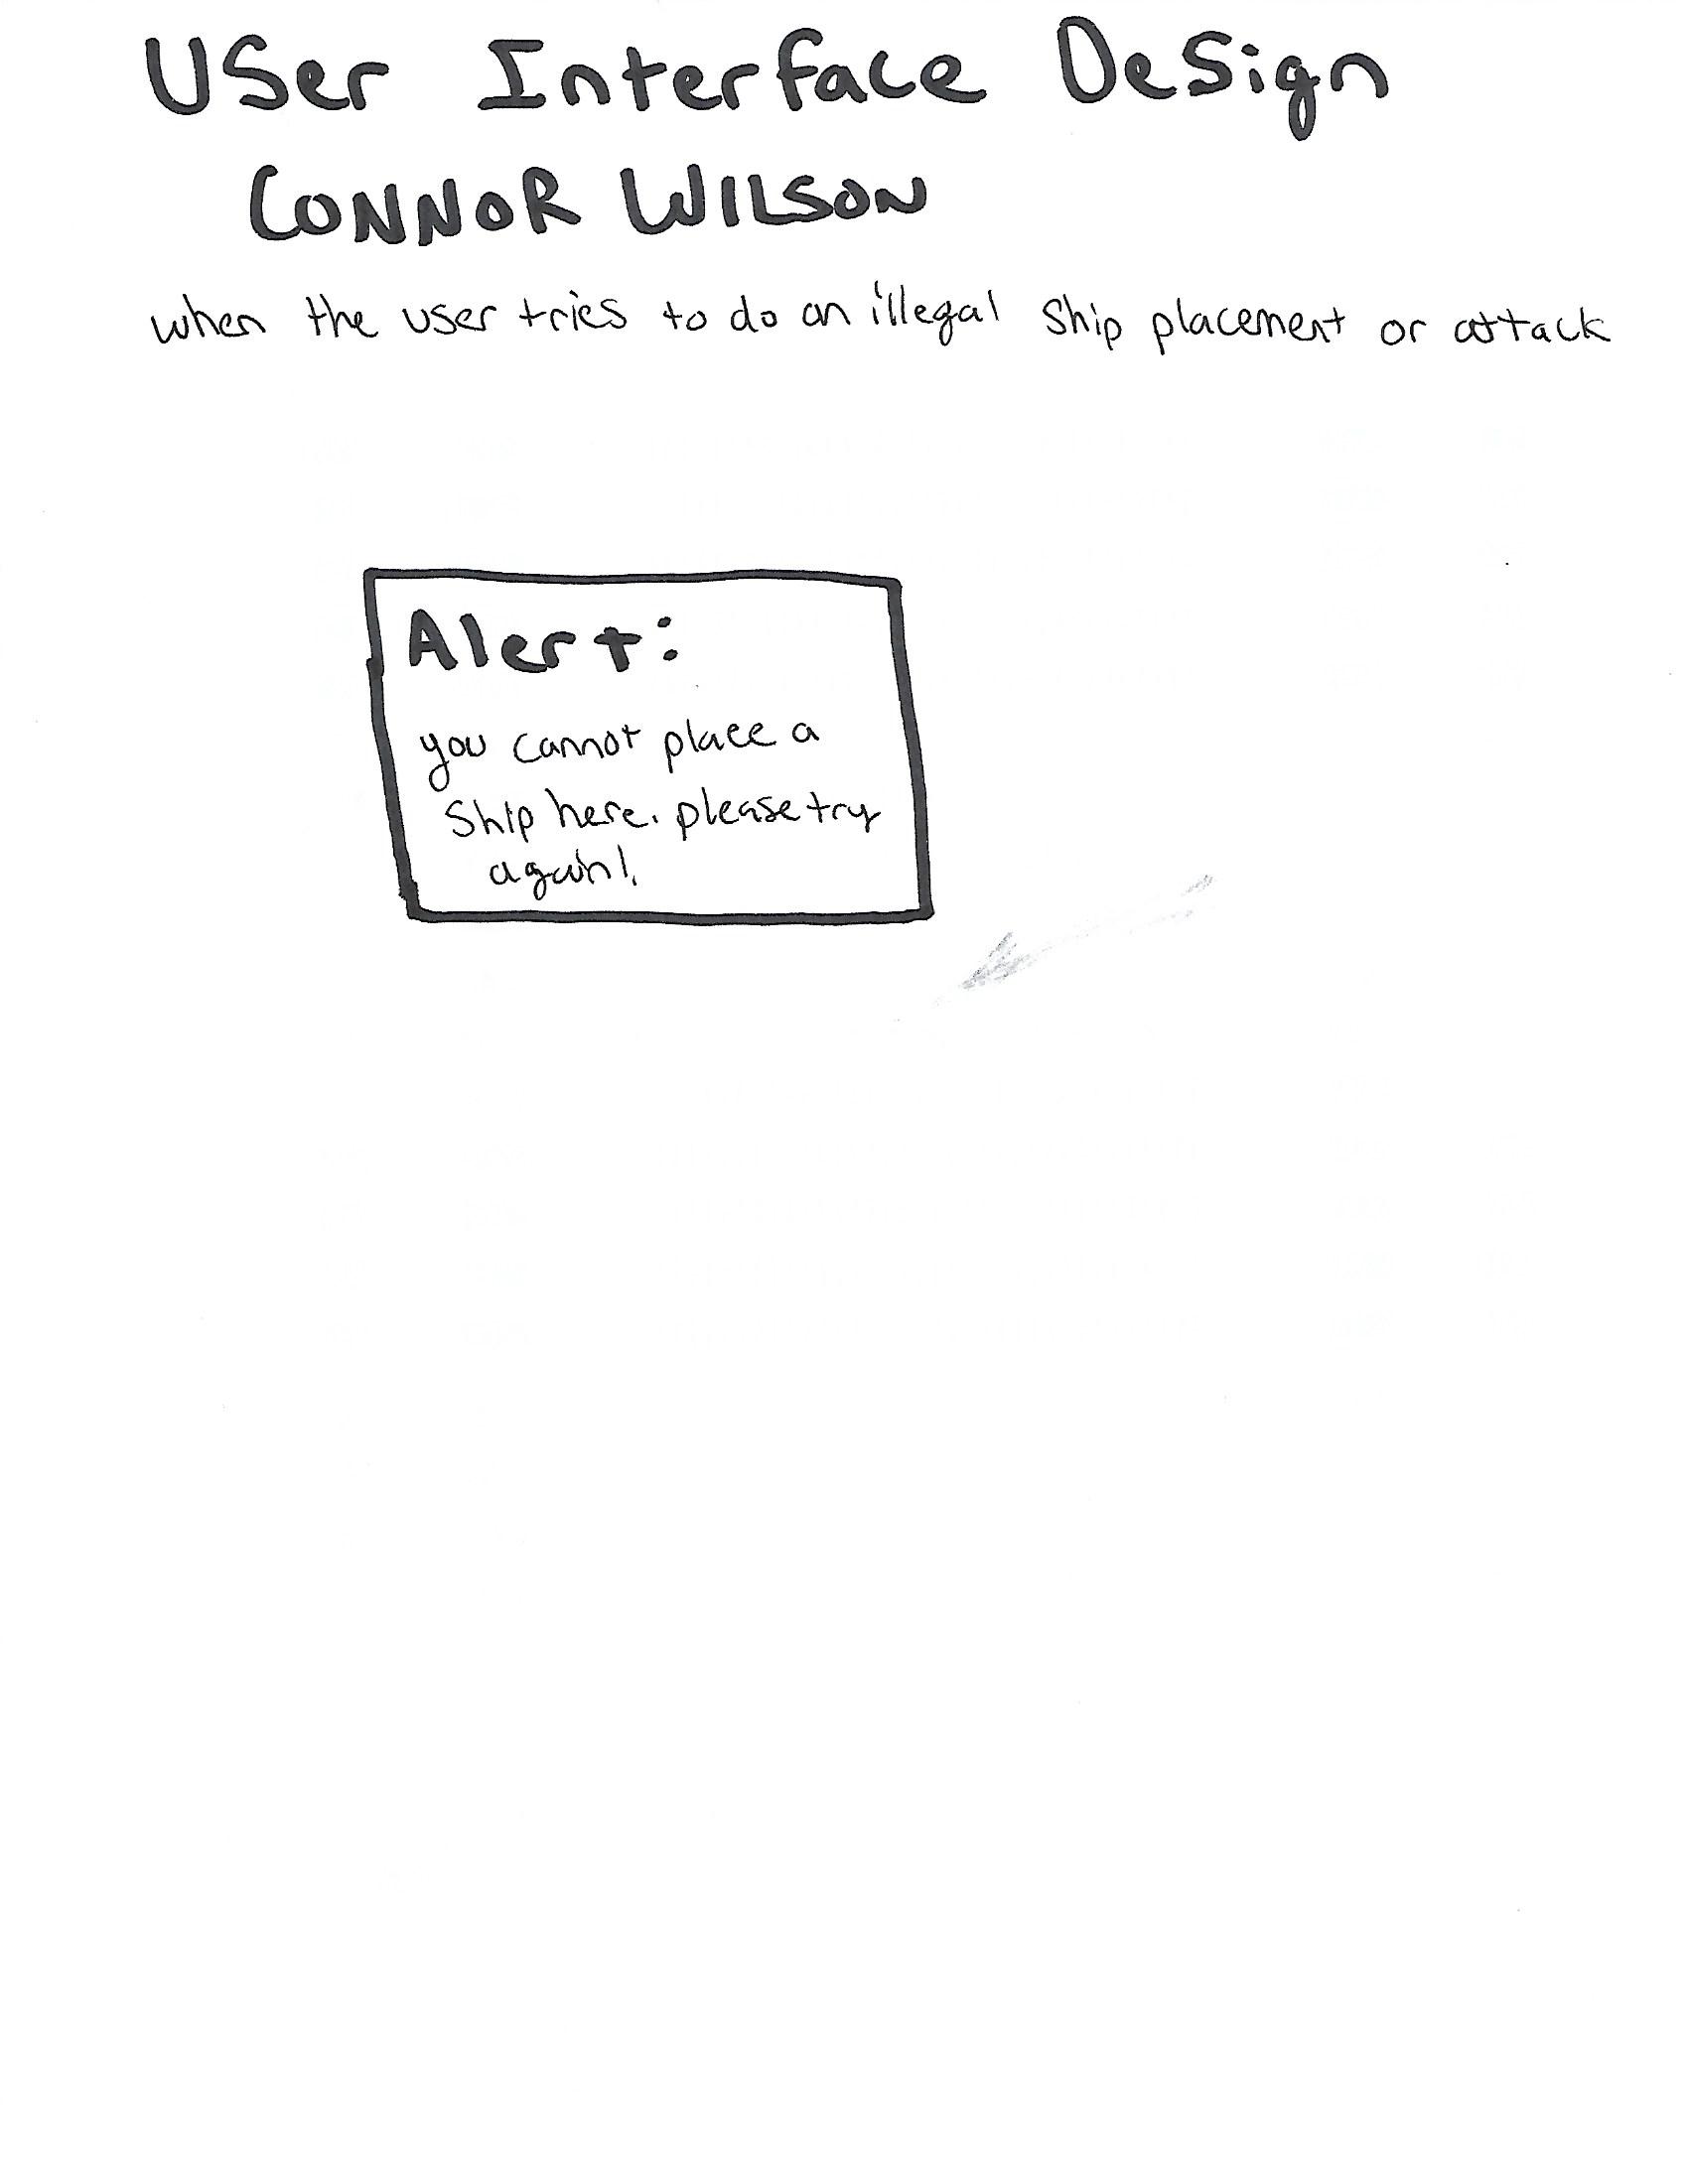 User Interface Design
CONNOR WILSON
when the user tries to do an illegal ship placement or attack
Alert:
you cannot place a
ship here. please try
again!